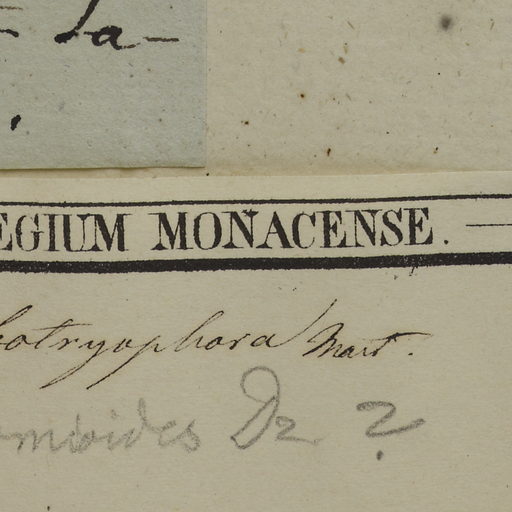 La-
EGIUM MONACENSE.
botryophora Mart.
Dz ?